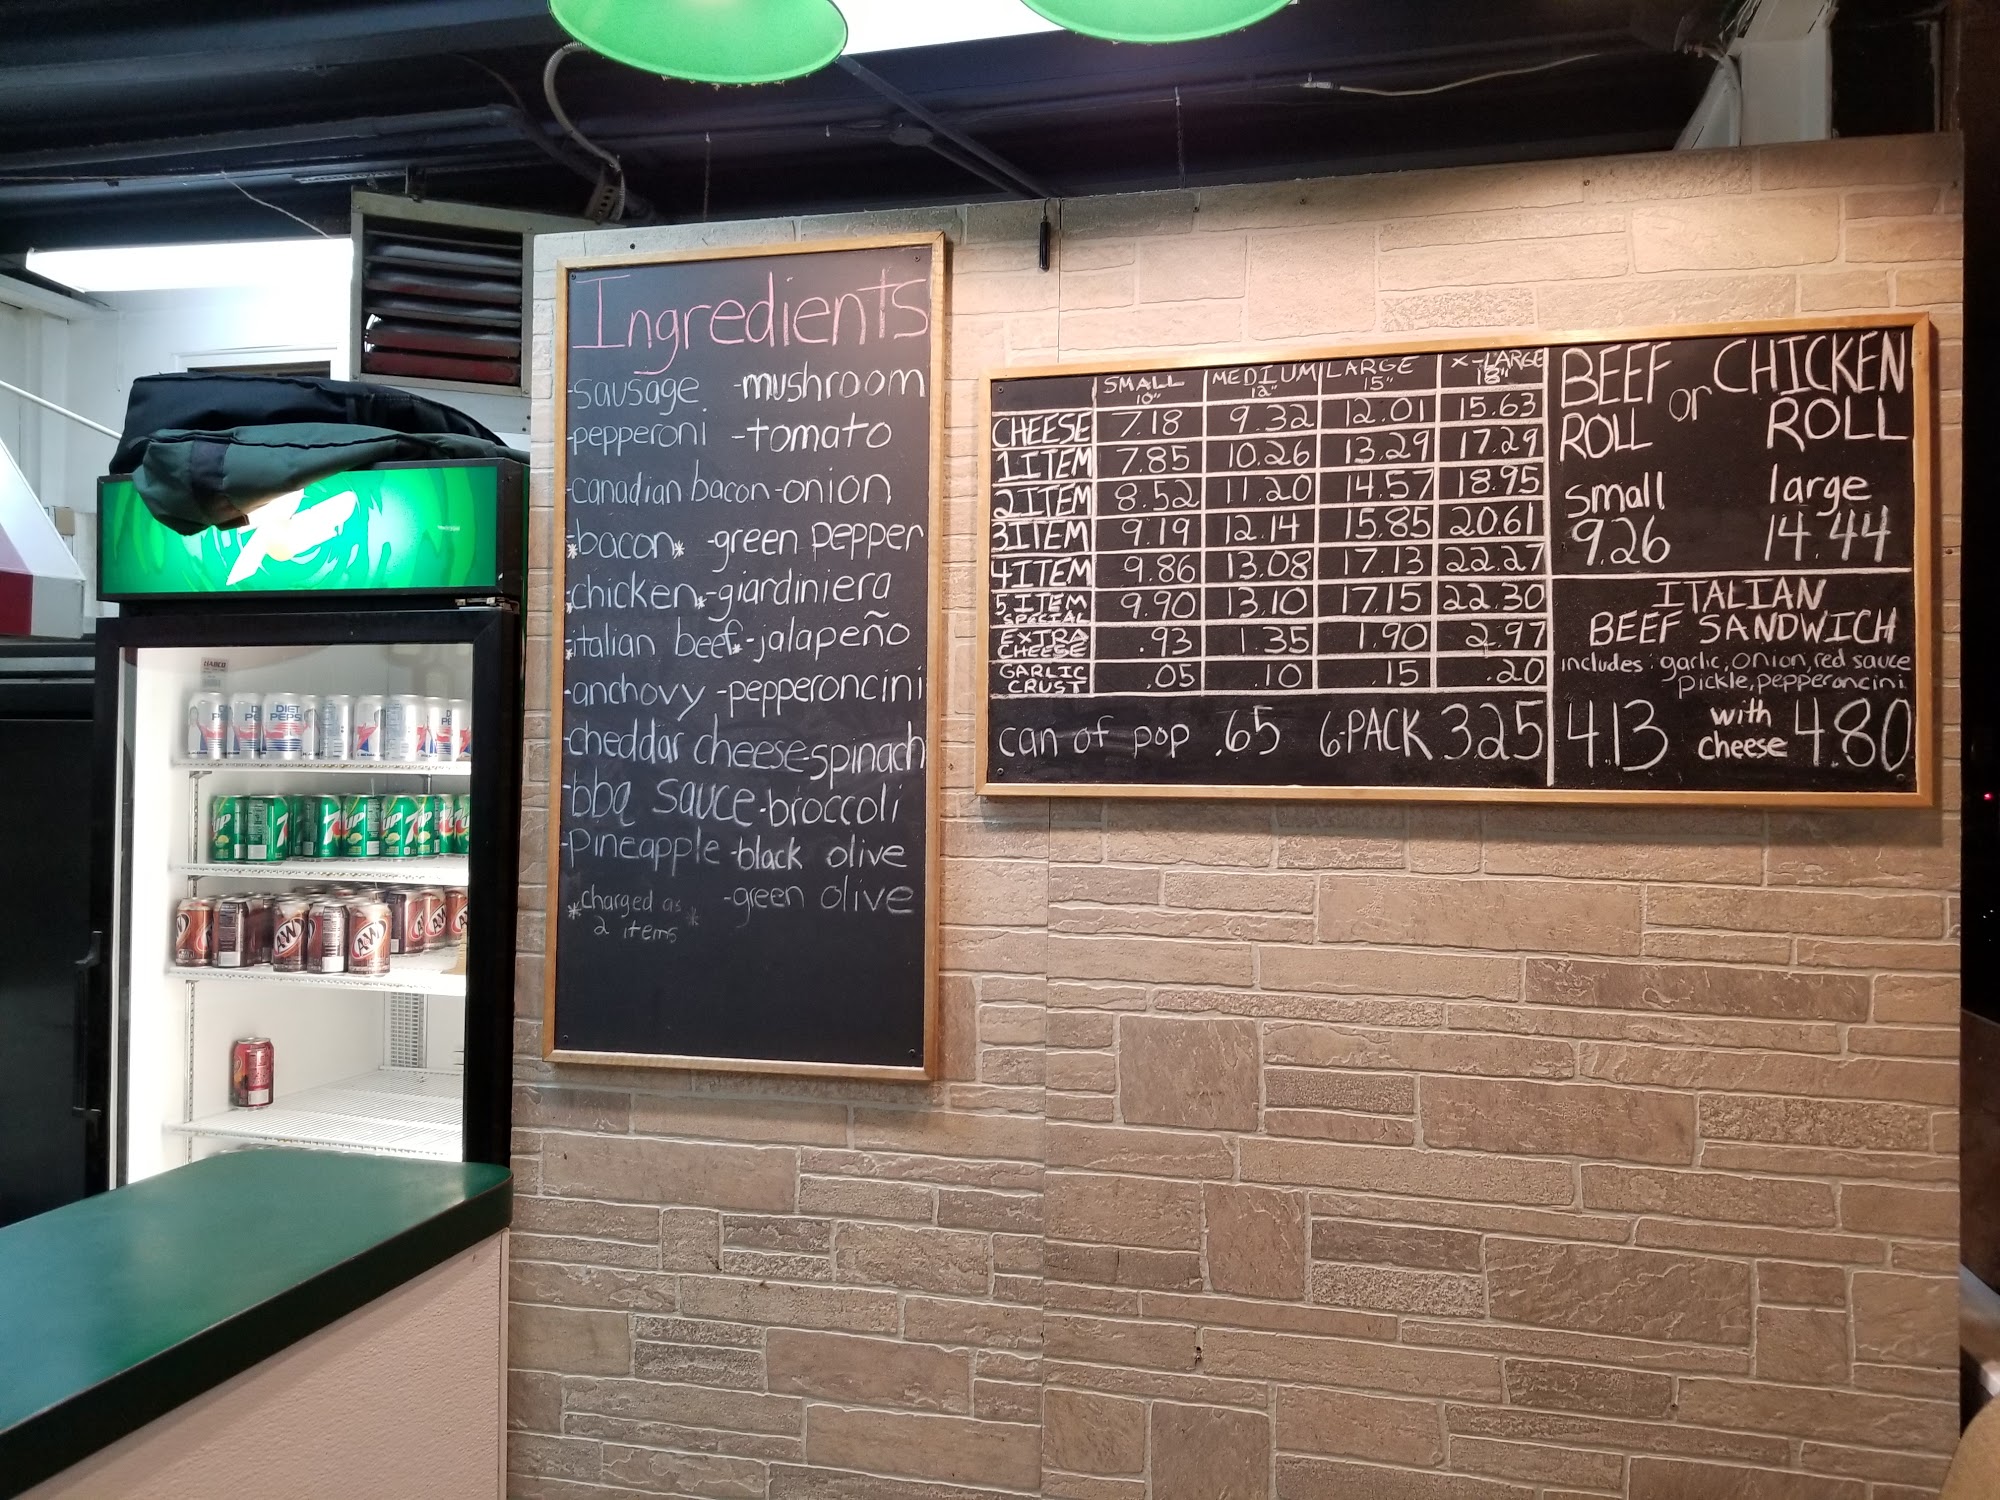 Ingredients
-sausage -mushroom
-pepperoni -tomato
-canadian bacon -onion
*bacon* -green pepper
*chicken* -giardiniera
*italian beef* -jalapeño
-anchovy -pepperoncini
-cheddar cheese -spinach
-bbq sauce -broccoli
-pineapple -black olive
*charged as * -green olive
2 items
SMALL MEDIUM LARGE X-LARGE
10" 12" 15" 18"
CHEESE 7.18 9.32 12.01 15.63
1 ITEM 7.85 10.26 13.29 17.29
2 ITEM 8.52 11.20 14.57 18.95
3 ITEM 9.19 12.14 15.85 20.61
4 ITEM 9.86 13.08 17.13 22.27
5 ITEM SPECIAL 9.90 13.10 17.15 22.30
EXTRA CHEESE .93 1.35 1.90 2.97
GARLIC CRUST .05 .10 .15 .20
can of pop .65 6-PACK 3.25
BEEF or CHICKEN
ROLL ROLL
small large
9.26 14.44
ITALIAN
BEEF SANDWICH
includes: garlic, onion, red sauce
pickle, pepperoncini
4.13 with cheese 4.80
DIET PEPSI
7UP
A&W